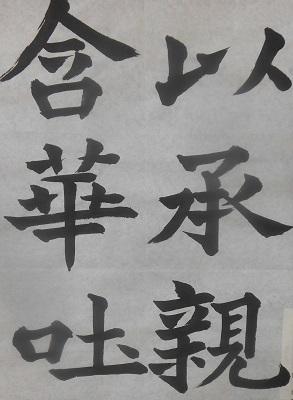 以承親
含華吐